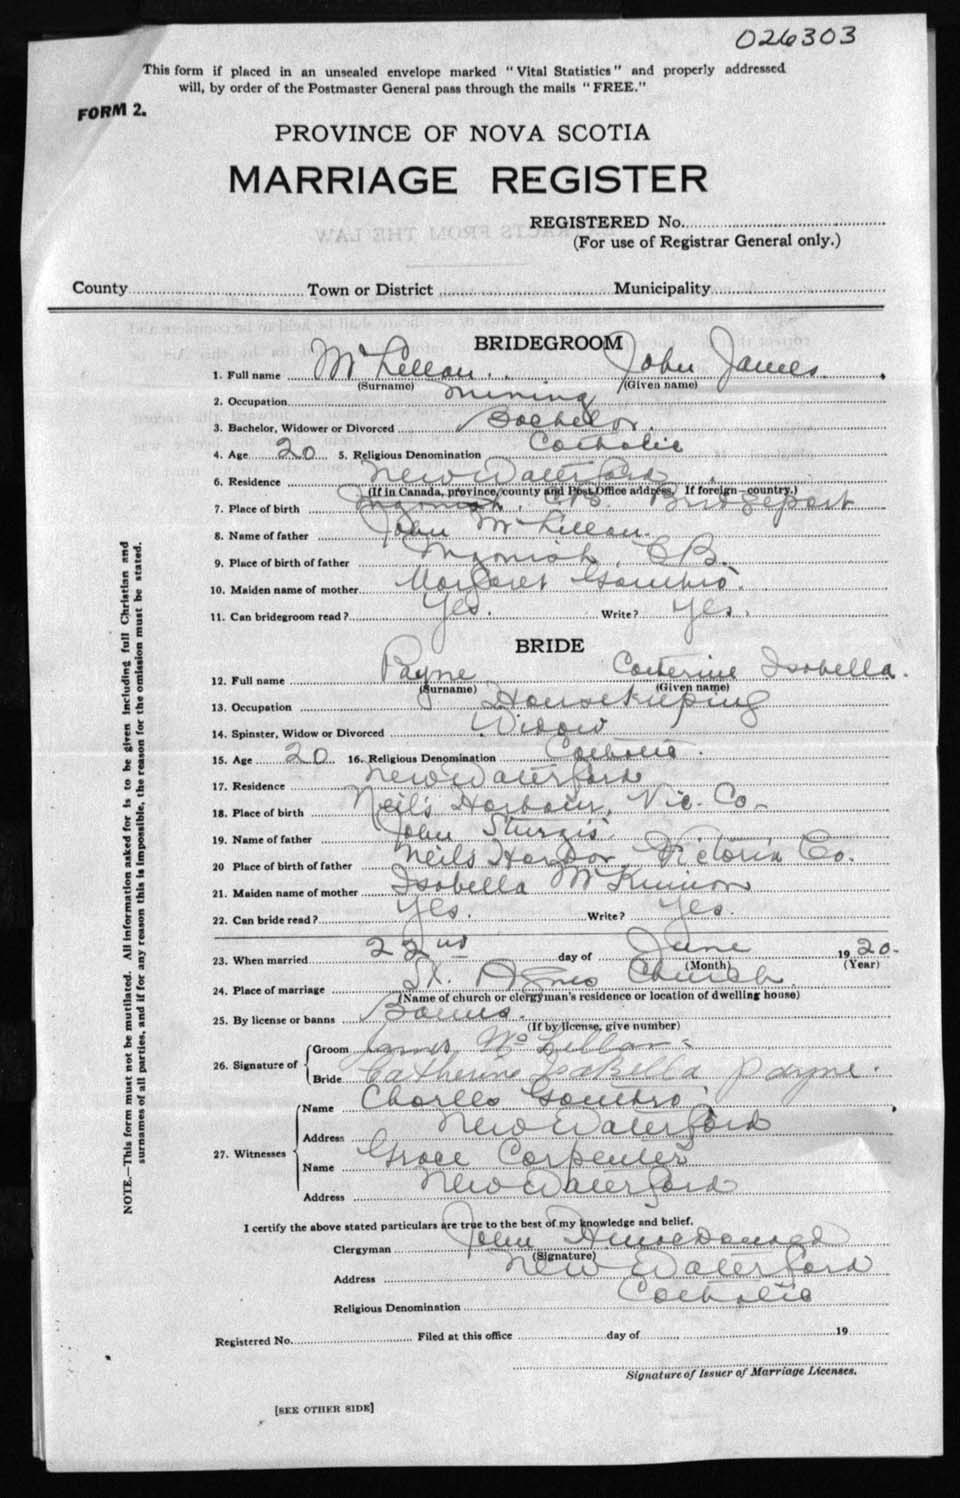 026303
This form if placed in an unsealed envelope marked "Vital Statistics" and properly addressed
will, by order of the Postmaster General pass through the mails "FREE."
FORM 2.
PROVINCE OF NOVA SCOTIA
MARRIAGE REGISTER
REGISTERED No.
(For use of Registrar General only.)
County Town or District Municipality
BRIDEGROOM
1. Full name McLellan. John James
(Surname) (Given name)
2. Occupation Mining
3. Bachelor, Widower or Divorced Bachelor.
4. Age 20 5. Religious Denomination Catholic
6. Residence New Waterford
(If in Canada, province, county and Post Office address. If foreign—country.)
7. Place of birth Ingonish, C.B. Bridgeport
8. Name of father John McLellan.
9. Place of birth of father Ingonish, C.B.
10. Maiden name of mother Margaret Gouthro
11. Can bridegroom read? Yes. Write? Yes.
BRIDE
12. Full name Payne Catherine Isobella.
(Surname) (Given name)
13. Occupation Housekeeping
14. Spinster, Widow or Divorced Widow
15. Age 20 16. Religious Denomination Catholic.
17. Residence New Waterford
18. Place of birth Neil's Harbour, Vic. Co.
19. Name of father John Sturgis.
20 Place of birth of father Neils Harbor, Victoria Co.
21. Maiden name of mother Isabella McKinnon
22. Can bride read? Yes. Write? Yes.
23. When married 22nd day of June 1920.
(Month) (Year)
24. Place of marriage St. Agnes Church.
(Name of church or clergyman's residence or location of dwelling house)
25. By license or banns Banns.
(If by license, give number)
26. Signature of Groom James McLellan
Bride Catherine Isabella Payne.
27. Witnesses Name Charles Gouthro
Address New Waterford
Name Grace Carpenter
Address New Waterford
I certify the above stated particulars are true to the best of my knowledge and belief.
Clergyman John A MacDonald
(Signature)
Address New Waterford
Religious Denomination Catholic
Registered No. Filed at this office day of 19
Signature of Issuer of Marriage Licenses.
[SEE OTHER SIDE]
NOTE.—This form must not be mutilated. All information asked for is to be given including full Christian and
surnames of all parties, and if for any reason this is impossible, the reason for the omission must be stated.